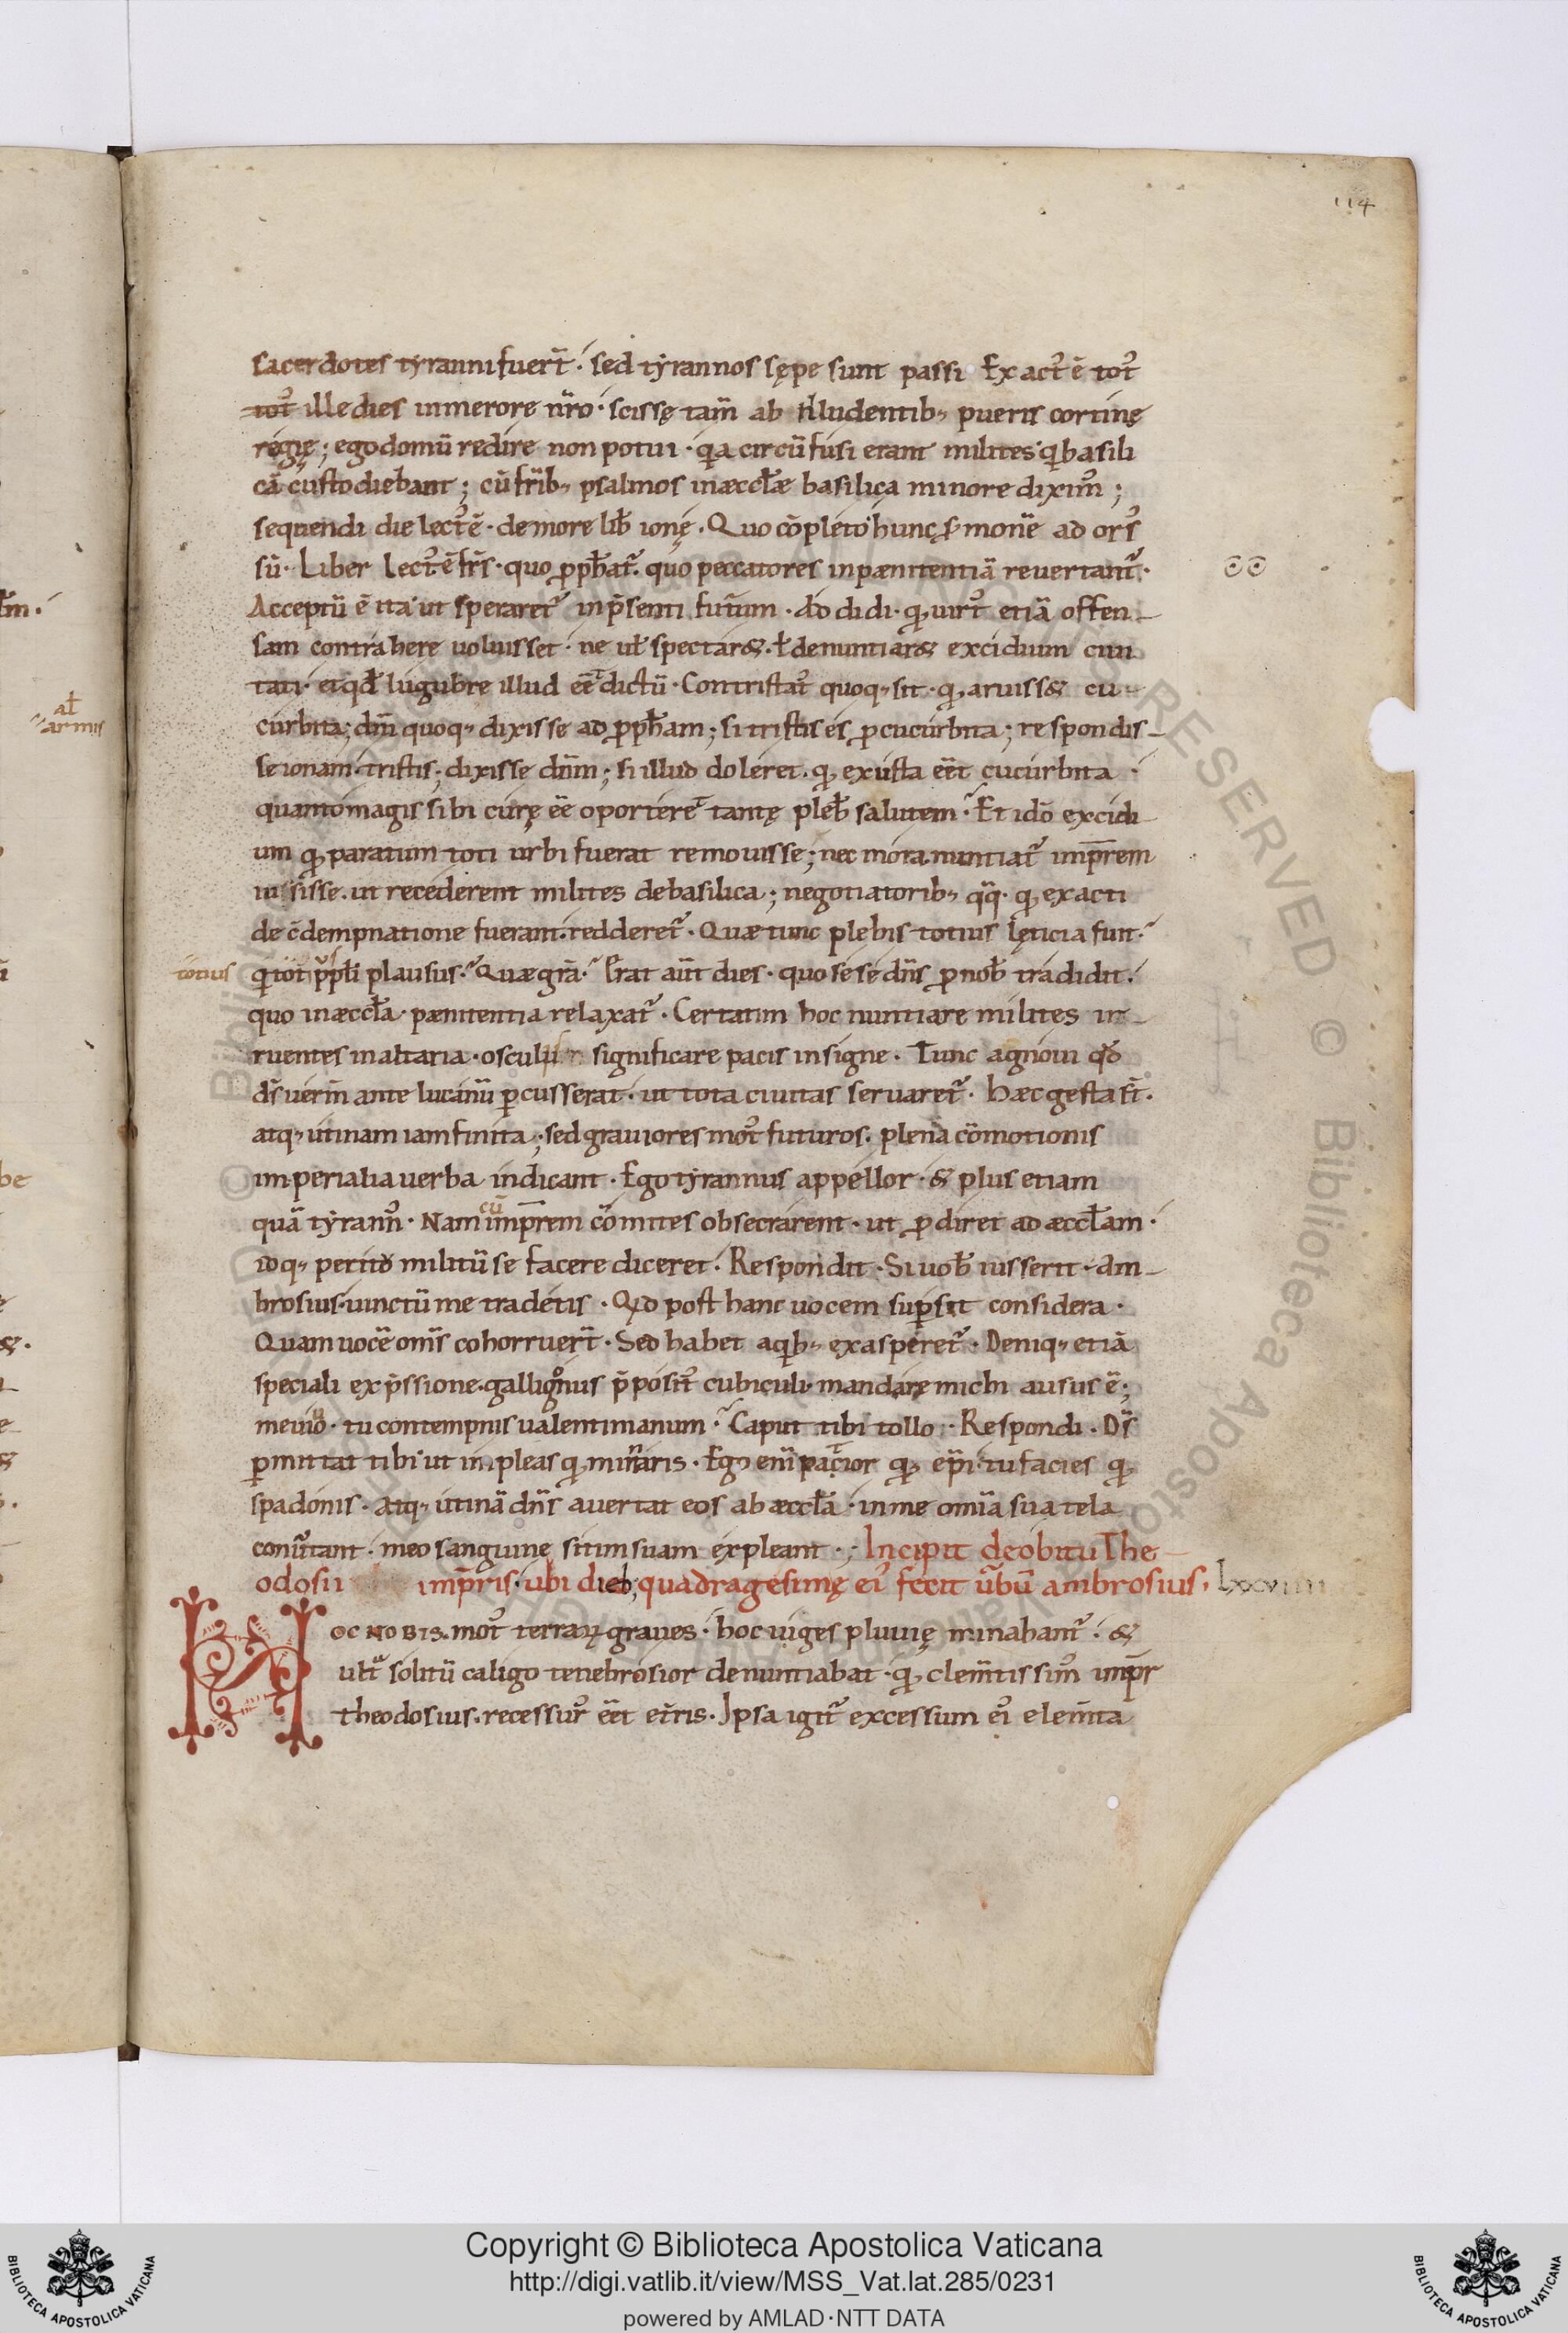 114
sacerdotes tyranni fuer̄t · sed tyrannos sępe sunt passi Exact᾽ ē tot᾽
tot᾽ ille dies in merore nr̄o · scissę tam̄ ab illudentib; pueris cortinę
regię ; ego domū redire non potui · q̇a circūfusi erant milites q̇ basili
cā custodiebant ; cū fr̄ib; psalmos in æccl̄æ basilica minore dixim᾽ ;
sequendi die lect᾽ ē · de more lib̄ ionę . Quo cōpleto hunc sermonē ad ors᾽
sū · Liber lect᾽ ē fr̄s · quo ꝓph̄at᾽ quo peccatores in pænitentiā revertant᾽ ·
Acceptū ē ita ut speraret᾽ in p̄senti futur̄um · do didi · q᷒ uir᾽ etiā offen-
sam contrahere uoluisset · ne ut spectar& · ł denuntiar& excidium ciui
tati · et qd̄ lugubre illud ēē dictū · Contristat᾽ quoq; sit · q᷒ aruiss& cu-
curbita ; dn̄m quoq; dixisse ad ꝓph̄am ; si tristis es ꝓ cucurbita ; respondis-
se ionam · tristis ; dixisse dn̄m ; si illud doleret · q᷒ exusta ēēt cucurbita
quanto magis sibi curę ēē oportere tantę pleb̄ salutem · Et idō excidi-
um q᷒ paratum toti urbi fuerat remouisse ; nec mora nuntiat᾽ imp̄rem
iussisse · ut recederent milites de basilica ; negotiatorib; qq̄ · q᷒ exacti
de c̄dempnatione fuerant · redderet᾽ · Quæ tunc plebis totius lęticia fuit ·
totius q̇ tot᾽ ppl̄i plausus · Quæ grā · Erat aūt dies · quo sese dn̄s ꝓ nob̄ tradidit ·
quo in æccl̄a · pænitentia relaxat᾽ · Certatim hoc nuntiare milites in-
ruentes in altaria · osculis significare pacis insigne · Tunc agnoui qd̄
ds̄ uerm̄ ante lucanū ꝑcusserat · ut tota ciuitas seruaret᾽ · Hæc gesta st̄ ·
atq; utinam iam finita ; sed grauiores mot᾽ futuros · plena cōmotionis
imperialia uerba indicant · Ego tyrannus appellor · & plus etiam
quā tyrann᾽ · Nam cū imp̄rem comites obsecrarent · ut ꝓdiret ad æccl̄am ·
idq; petitō militū se facere diceret · Respondit · Si uob̄ iusserit · Am-
brosius · uinctū me tradetis · Qd̄ post hanc uocem suꝑsit considera ·
Quam uocē om̄s cohorruer̄t · Sed habet a q̇b; exasperet᾽ · Deniq; etiā
speciali exp̄ssione · galligonus p̄posit᾽ cubiculi · mandare michi ausus ē ;
me uiuo · tu contempnis ualentinianum · Caput tibi tollo · Respondi · Ds̄
ꝑmittat tibi ut impleas q᷒ minaris · Ego eni̅ patior q᷒ ep̄i · tu facies q᷒
spadonis · atq; utinā dn̄s auertat eos ab æccl̄a · in me omīa sua tela
conuertant · meo sanguine sitim suam expleant · ; Incipit de obitu The-
odosii imp̄ris · ubi dieb; quadragesimę ei᾽ fecit ūbū ambrosius · Lxxviiii
Hoc nobis · mot᾽ terraꝝ graues · hoc iuges pluuię minabant᾽ · &
ult᾽ solitū caligo tenebrosior denuntiabat · q᷒ clem̄tissim᾽ imp̄r
theodosius · recessur᾽ ēēt et̄ris · Ipsa igit᾽ excessum ei᾽ elem̄ta
al̄
armis
Copyright © Biblioteca Apostolica Vaticana
http://digi.vatlib.it/view/MSS_Vat.lat.285/0231
powered by AMLAD·NTT DATA
BIBLIOTECA APOSTOLICA VATICANA
BIBLIOTECA APOSTOLICA VATICANA